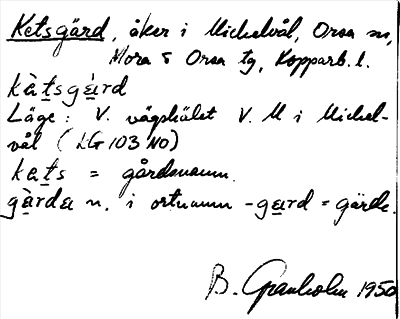 Ketsgärd, åker i Michelvål, Orsa sn,
Mora o Orsa tg, Kopparb. l.
kètsgὰrd
Läge: V. vägskälet V. M i Michel-
vål (LG 103 NO)
kets = gårdsnamn.
gàrda n. i ortnamn -gard = gärde.
B. Granholm 1950